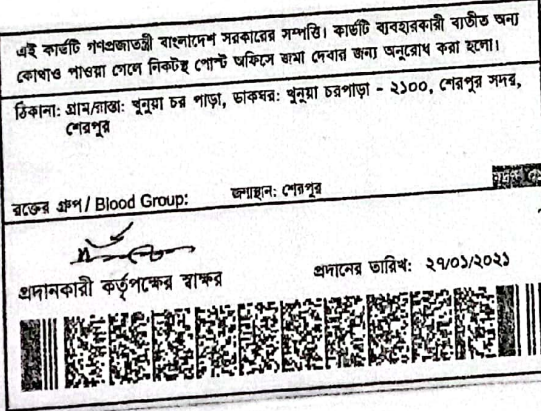 এই কার্ডটি গণপ্রজাতন্ত্রী বাংলাদেশ সরকারের সম্পত্তি। কার্ডটি ব্যবহারকারী ব্যতীত অন্য
কোথাও পাওয়া গেলে নিকটস্থ পোস্ট অফিসে জমা দেবার জন্য অনুরোধ করা হলো।
ঠিকানা: গ্রাম/রাস্তা: খুনুয়া চর পাড়া, ডাকঘর: খুনুয়া চরপাড়া - ২১০০, শেরপুর সদর,
শেরপুর
রক্তের গ্রুপ / Blood Group: জন্মস্থান: শেরপুর
প্রদানকারী কর্তৃপক্ষের স্বাক্ষর প্রদানের তারিখ: ২৭/০১/২০২১